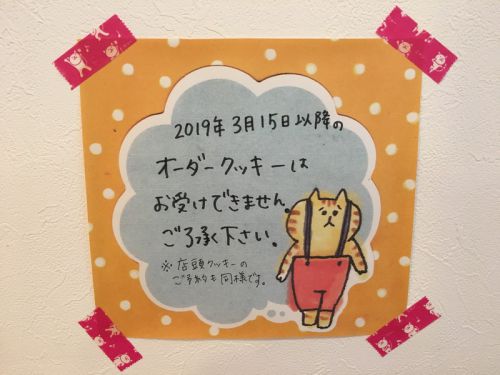 2019年3月15日以降の
オーダークッキーは
お受けできません。
ご了承下さい。
※店頭クッキーの
ご予約も同様です。